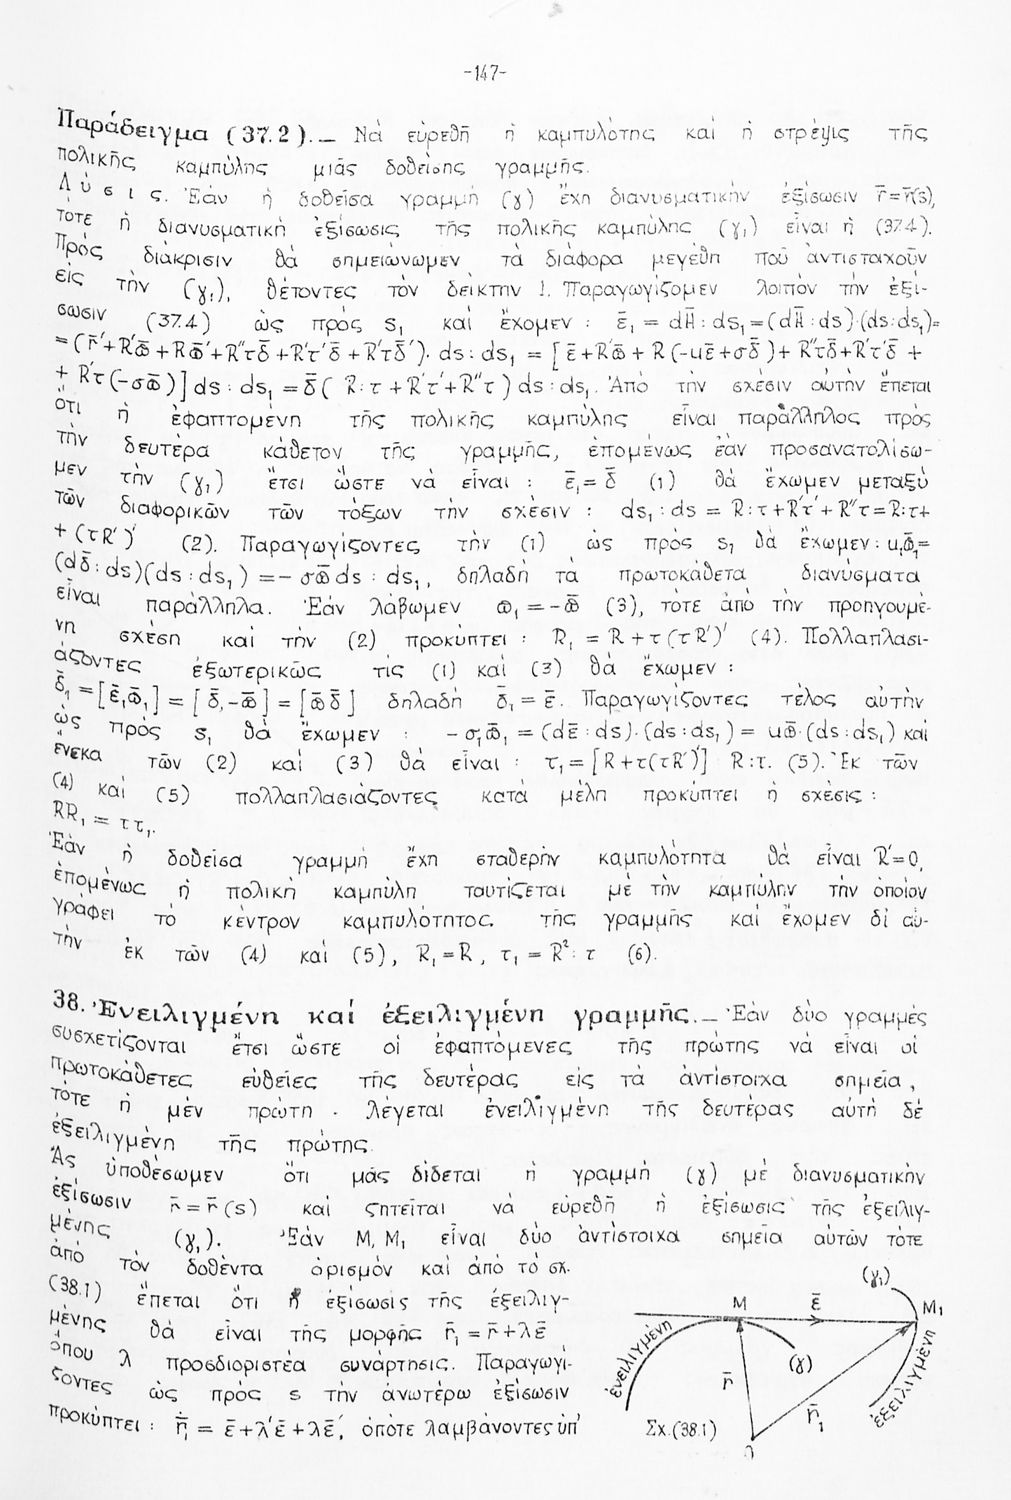 -147-
Παράδειγμα (37.2)._ Νὰ εὑρεθῆ ἡ καμπυλότης καὶ ἡ στρέψις τῆς
πολικῆς καμπύλης μιᾶς δοθείσης γραμμῆς.
Λύσις. Ἐὰν ἡ δοθεῖσα γραμμὴ (γ) ἔχη διανυσματικὴν ἐξίσωσιν r̄=r̄(s),
τότε ἡ διανυσματικὴ ἐξίσωσις τῆς πολικῆς καμπύλης (γ₁) εἶναι ἡ (37.4).
Πρὸς διάκρισιν θὰ σημειώνωμεν τὰ διάφορα μεγέθη ποὺ ἀντιστοιχοῦν
εἰς τὴν (γ₁), θέτοντες τὸν δείκτην 1. Παραγωγίζομεν λοιπὸν τὴν ἐξί-
σωσιν (37.4) ὡς πρὸς s₁ καὶ ἔχομεν : ε̄₁ = dH̄ : ds₁ = (dH̄ : ds)·(ds:ds₁)=
=(r̄′+R′ω̄+Rω̄′+R″τδ̄+R′τ′δ̄+R′τδ̄′)· ds : ds₁ = [ε̄+R′ω̄+R(-uε̄+σδ̄)+R″τδ̄+R′τ′δ̄ +
+ R′τ(-σω̄)] ds : ds₁ = δ̄( R:τ +R′τ′+R″τ ) ds : ds₁. Ἀπὸ τὴν σχέσιν αὐτὴν ἕπεται
ὅτι ἡ ἐφαπτομένη τῆς πολικῆς καμπύλης εἶναι παράλληλος πρὸς
τὴν δευτέρα κάθετον τῆς γραμμῆς, ἑπομένως ἐὰν προσανατολίσω-
μεν τὴν (γ₁) ἔτσι ὥστε νὰ εἶναι : ε̄₁ = δ̄ (1) θὰ ἔχωμεν μεταξὺ
τῶν διαφορικῶν τῶν τόξων τὴν σχέσιν : ds₁ : ds = R:τ+R′τ′+R″τ=R:τ+
+ (τR′)′ (2). Παραγωγίζοντες τὴν (1) ὡς πρὸς s₁ θὰ ἔχωμεν : u₁ω̄₁=
(dδ̄ : ds)(ds : ds₁) = - σω̄ ds : ds₁, δηλαδὴ τὰ πρωτοκάθετα διανύσματα
εἶναι παράλληλα. Ἐὰν λάβωμεν ω̄₁ = - ω̄ (3), τότε ἀπὸ τὴν προηγουμέ-
νη σχέση καὶ τὴν (2) προκύπτει : R₁ = R + τ(τR′)′ (4). Πολλαπλασι-
άζοντες ἐξωτερικῶς τὶς (1) καὶ (3) θὰ ἔχωμεν :
δ̄₁ = [ε̄₁ω̄₁] = [δ̄,-ω̄] = [ω̄ δ̄] δηλαδὴ δ̄₁ = ε̄. Παραγωγίζοντες τέλος αὐτὴν
ὡς πρὸς s₁ θὰ ἔχωμεν : - σ₁ω̄₁ = (dε̄ : ds)·(ds : ds₁) = uω̄·(ds : ds₁) καὶ
ἕνεκα τῶν (2) καὶ (3) θὰ εἶναι : τ₁ = [R+τ(τR′)′] R:τ. (5). Ἐκ τῶν
(4) καὶ (5) πολλαπλασιάζοντες κατὰ μέλη προκύπτει ἡ σχέσις :
RR₁ = ττ₁.
Ἐὰν ἡ δοθεῖσα γραμμὴ ἔχη σταθερὴν καμπυλότητα θὰ εἶναι R′=0,
ἑπομένως ἡ πολικὴ καμπύλη ταυτίζεται μὲ τὴν καμπύλην τὴν ὁποίον
γράφει τὸ κέντρον καμπυλότητος τῆς γραμμῆς καὶ ἔχομεν δι' αὐ-
τὴν ἐκ τῶν (4) καὶ (5), R₁ = R , τ₁ = R² : τ (6).
38. Ἐνειλιγμένη καί ἐξειλιγμένη γραμμῆς._ Ἐὰν δύο γραμμὲς
συσχετίζονται ἔτσι ὥστε οἱ ἐφαπτόμενες τῆς πρώτης νὰ εἶναι οἱ
πρωτοκάθετες εὐθεῖες τῆς δευτέρας εἰς τὰ ἀντίστοιχα σημεῖα,
τότε ἡ μὲν πρώτη λέγεται ἐνειλιγμένη τῆς δευτέρας αὐτὴ δὲ
ἐξειλιγμένη τῆς πρώτης.
Ἂς ὑποθέσωμεν ὅτι μᾶς δίδεται ἡ γραμμὴ (γ) μὲ διανυσματικὴν
ἐξίσωσιν r̄ = r̄(s) καὶ ζητεῖται νὰ εὑρεθῆ ἡ ἐξίσωσις τῆς ἐξειλιγ-
μένης (γ₁). Ἐὰν Μ, Μ₁ εἶναι δύο ἀντίστοιχα σημεῖα αὐτῶν τότε
ἀπὸ τὸν δοθέντα ὁρισμὸν καὶ ἀπὸ τὸ σχ.
(38.1) ἕπεται ὅτι ἡ ἐξίσωσις τῆς ἐξειλιγ-
μένης θὰ εἶναι τῆς μορφῆς r̄₁ = r̄+λε̄
ὅπου λ προσδιοριστέα συνάρτησις. Παραγωγί-
ζοντες ὡς πρὸς s τὴν ἀνωτέρω ἐξίσωσιν
προκύπτει : r̄₁′ = ε̄+λ′ε̄+λε̄′, ὁπότε λαμβάνοντες ὑπ'
(γ₁)
Μ ε̄ Μ₁
ἐνειλιγμένη
(γ)
r̄
r̄₁
ἐξειλιγμένη
Σχ.(38.1)